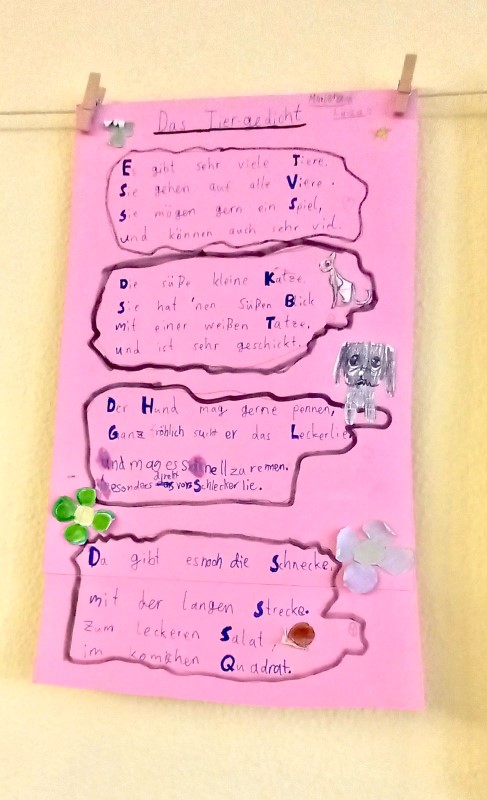 Das Tiergedicht
Es gibt sehr viele Tiere.
Sie gehen auf alle Viere.
Sie mögen gern ein Spiel,
und können auch sehr viel.
Die süße kleine Katze.
Sie hat 'nen süßen Blick
mit einer weißen Tatze,
und ist sehr geschickt.
Der Hund mag gerne pennen,
Ganz fröhlich sucht er das Leckerlie
und mag es schnell zu rennen.
besonders direkt vors Schleckerlie.
Da gibt es noch die Schnecke,
mit der langen Strecke.
Zum leckeren Salat,
im komischen Quadrat.